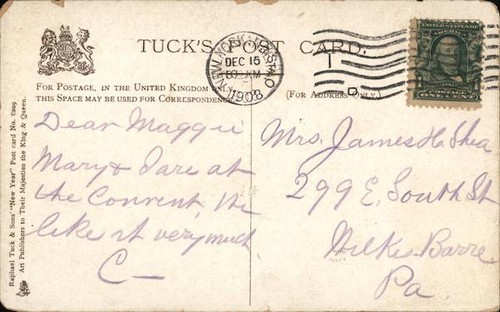 TUCK'S POST CARD.
FOR POSTAGE, IN THE UNITED KINGDOM ONLY,
THIS SPACE MAY BE USED FOR CORRESPONDENCE
(FOR ADDRESS ONLY.)
NEW YORK
DEC 15
1908
Dear Maggie
Mary & I are at
the Convent We
like it very much
C—
Mrs. James H. Shea
299 E. South St
Wilkes Barre
Pa.
Raphael Tuck & Sons' "New Year" Post card No.
Art Publishers to Their Majesties the King & Queen.